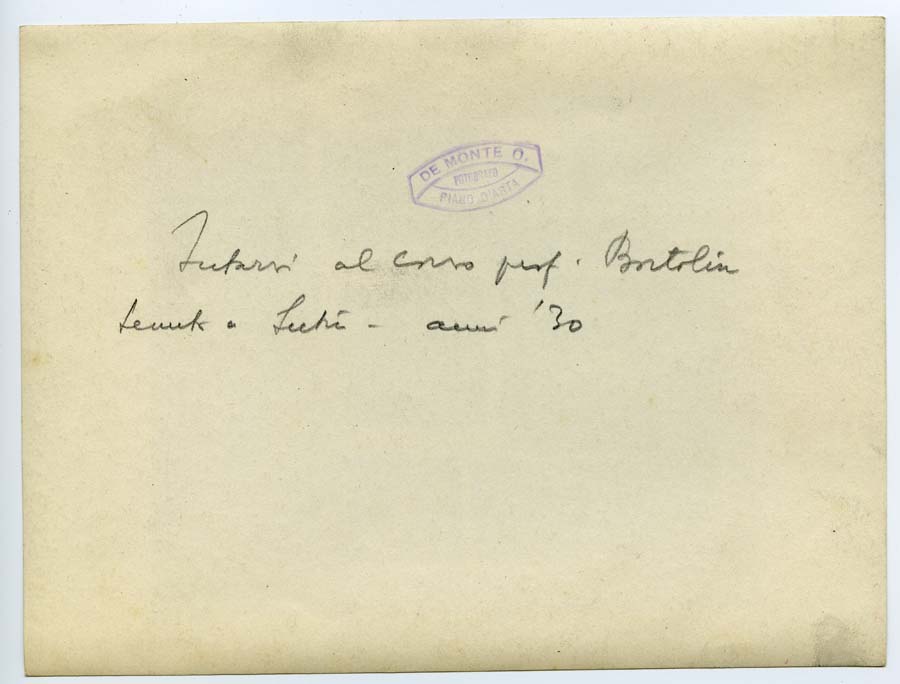 DE MONTE O.
FOTOGRAFO
PIANO D'ARTA
al corso prof. Bortolin
tenuto a - anni '30